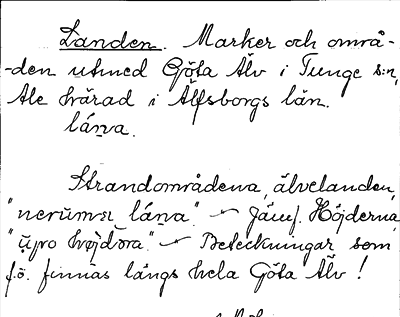 Landen. Marker och områ-
-den utmed Göta Älv i Tunge s:n,
Ale härad i Älfsborgs län.
láṇa.
Strandområdena, älvelanden,
"nerūmsı láṇa." – Jämf. Höjderna,
"ųpo højdəra." – Beteckningar som
f.ö. finnas längs hela Göta Älv!